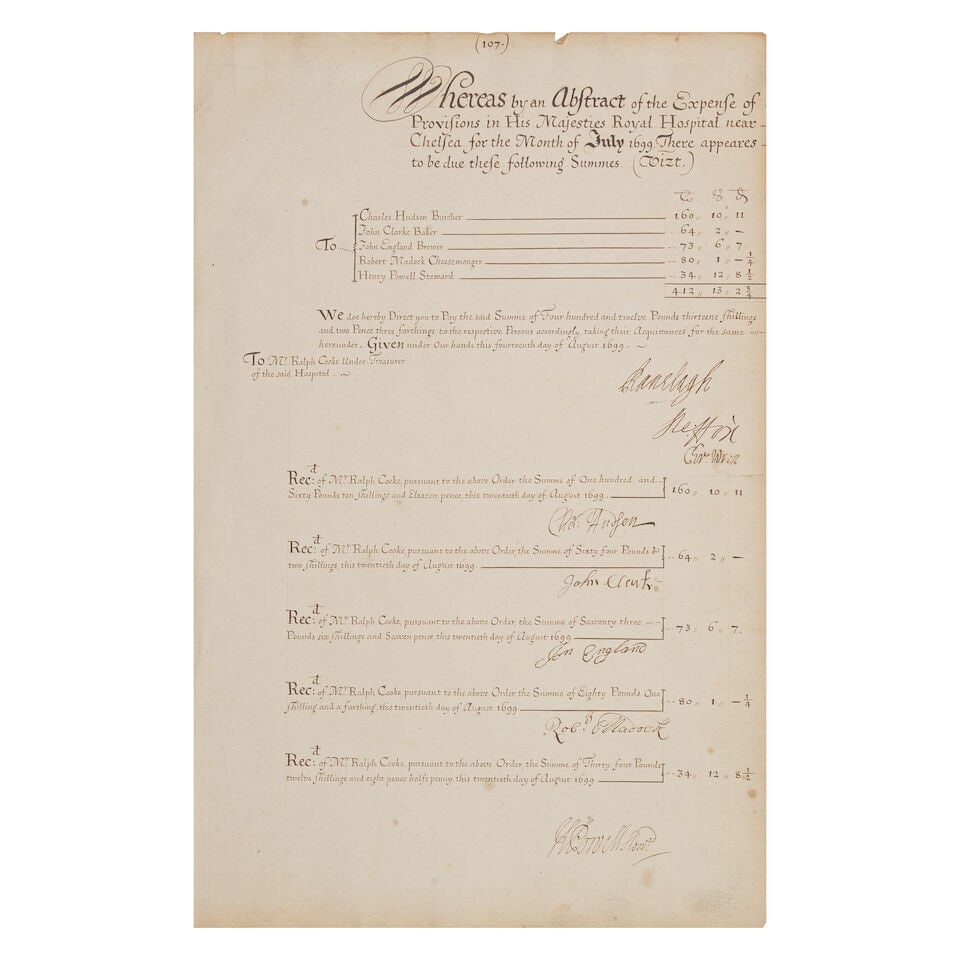 (107.)
Whereas by an Abstract of the Expense of
Provisions in His Majesties Royal Hospital near
Chelsea for the Month of July 1699, There appeares
to be due these following Summes. (Vizt.)
To
Charles Hudson Butcher 160 10 11
John Clarke Baker 64 2 —
John England Brewer 73 6 7
Robert Madock Cheesemonger 80 1 — 1/4
Henry Powell Steward 34 12 8 1/2
412 13 2 3/4
We doe hereby Direct you to Pay the said Summe of Four hundred and twelve Pounds thirteene shillings
and two Pence three farthings to the respective Persons accordingly, taking their Acquittances for the same
hereunder. Given under Our hands this fourteenth day of August 1699.
To Mr. Ralph Cooke Under Treasurer
of the said Hospital.
Ranelagh
Ste: ffox
Chr Wren
Recd: of Mr. Ralph Cooke, pursuant to the above Order the Summe of One hundred and
Sixty Pounds ten shillings and Eleaven pence, this twentieth day of August 1699. 160 10 11
Cha: Hudson
Recd: of Mr. Ralph Cooke, pursuant to the above Order, the Summe of Sixty four Pounds &
two shillings, this twentieth day of August 1699. 64 2 —
John Clark
Recd: of Mr. Ralph Cooke, pursuant to the above Order, the Summe of Seaventy three
Pounds six shillings and Seaven pence, this twentieth day of August 1699 73 6 7.
Jon England
Recd: of Mr. Ralph Cooke, pursuant to the above Order the Summe of Eighty Pounds, One
shilling and a farthing this twentieth day of August 1699 80 1 — 1/4
Robd Madock
Recd: of Mr. Ralph Cooke, pursuant to the above Order, the Summe of Thirty four Pounds
twelve shillings and eight pence halfe penny this twentieth day of August 1699 34 12 8 1/2
H Powell Stewrd